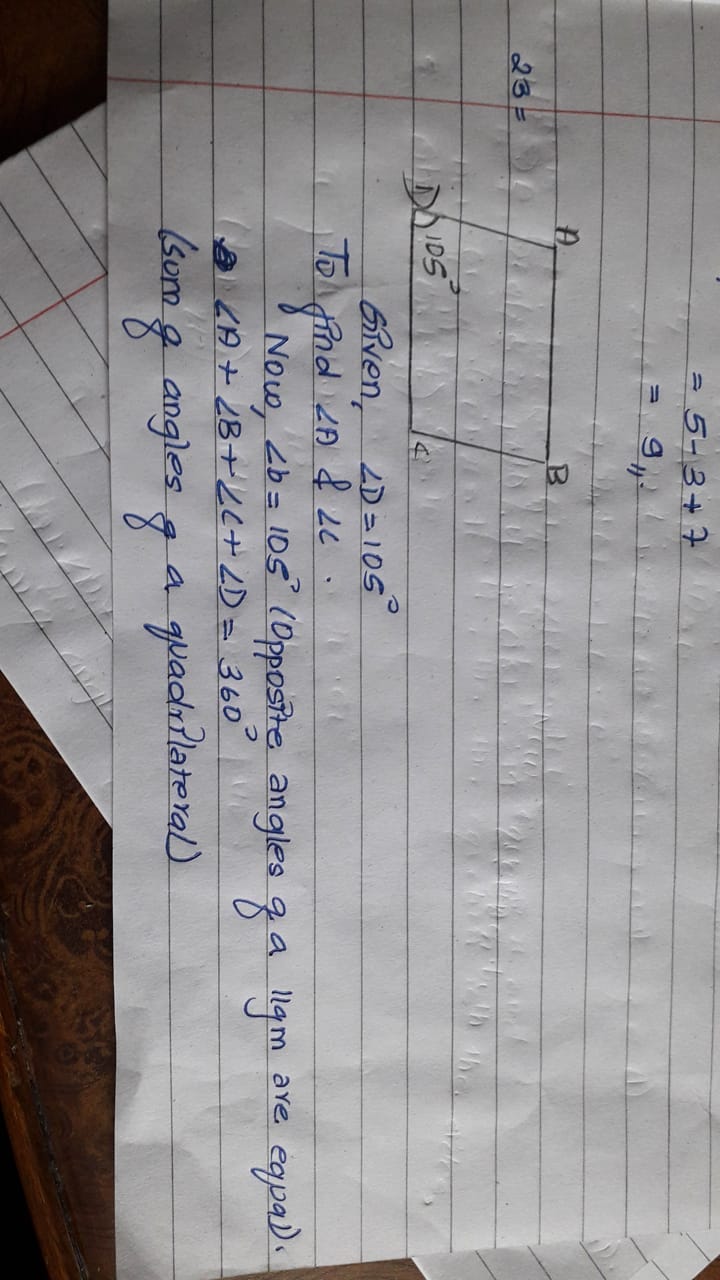 = 5-3+7
= 9,,.
23 =
A
B
D 105°
C
Given, ∠D = 105°
To find ∠A & ∠C.
Now, ∠b = 105° (Opposite angles of a llgm are equal).
∠A + ∠B + ∠C + ∠D = 360°
(sum of angles of a quadrilateral)